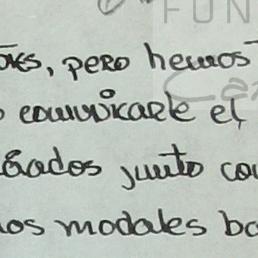 FUN
, pero hemos
comunicarle el
gados junto con
os modales ba